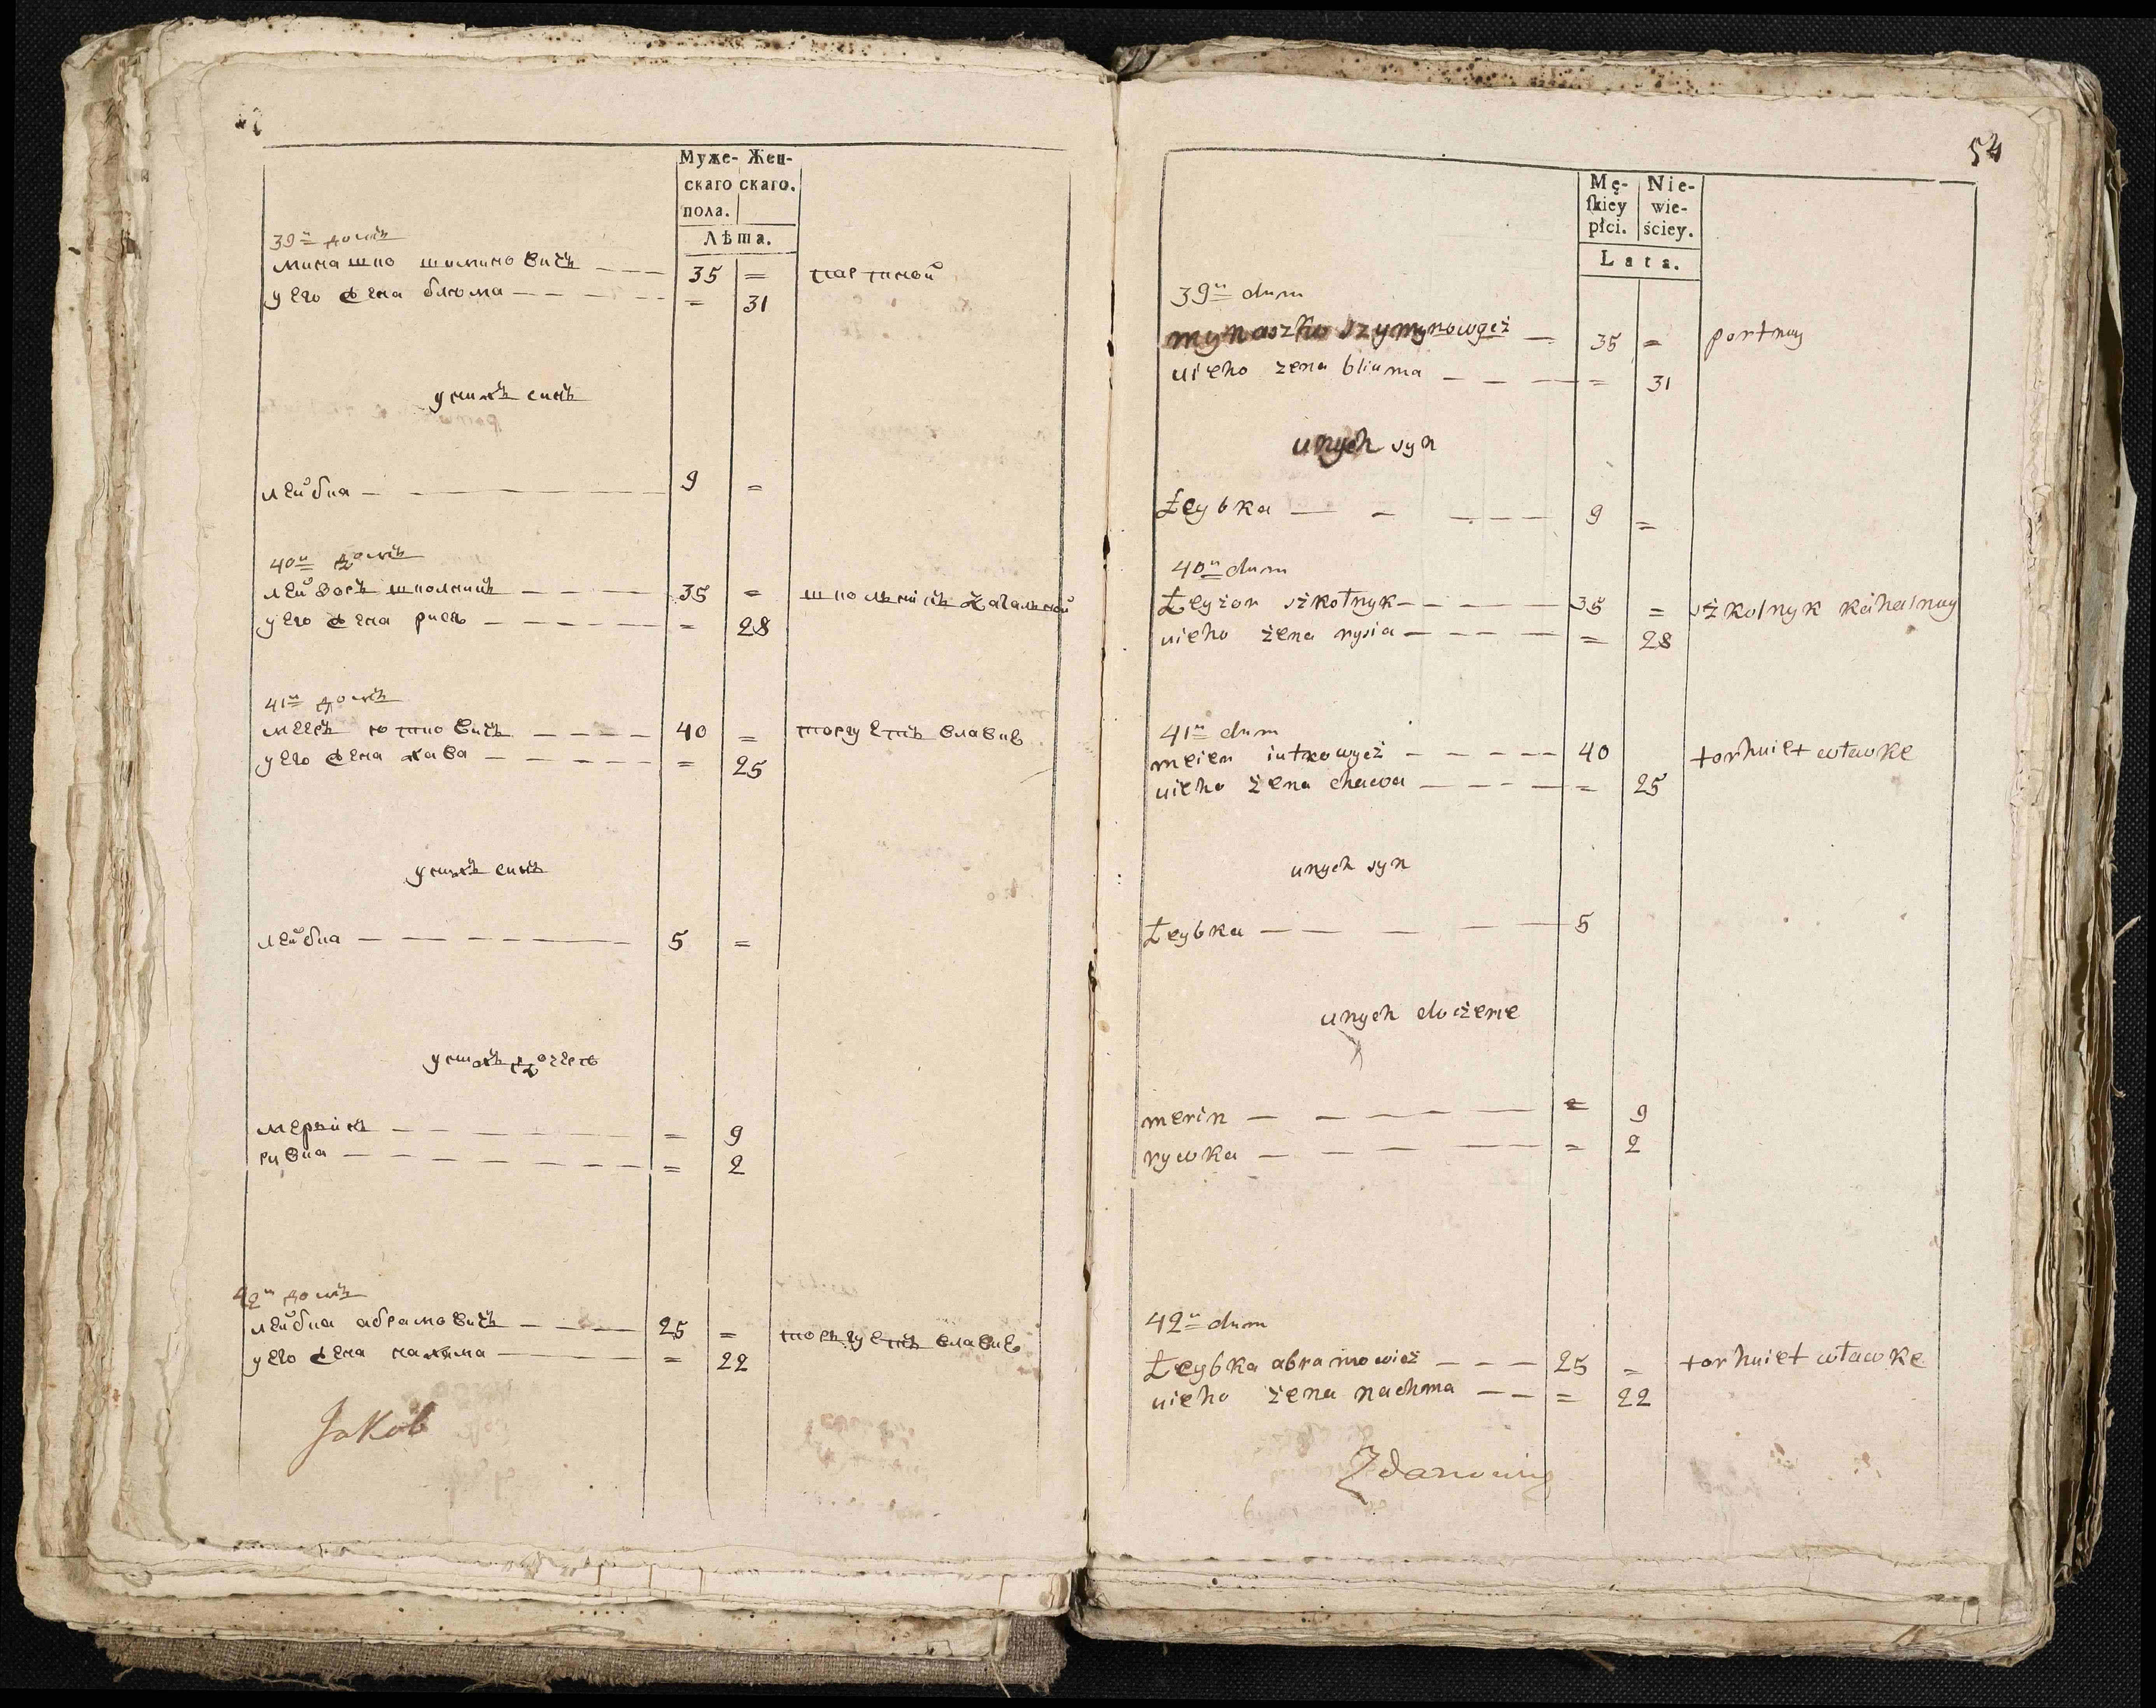 Муже- Жен-
скаго скаго.
пола.
Лѣта.
39й домъ
минашко шиминовичъ 35 = партной
у его жена блюма = 31
у нихъ синъ
лейбка 9 =
40й домъ
лейзоръ школникъ 35 = школьнікъ кагальной
у его жена рися = 28
41й домъ
меерь ютковичъ 40 = торгуетъ влавке
у его жена хава = 25
у нихъ синъ
лейбка 5 =
у нихъ дочере
мерынъ = 9
ривка = 2
42й домъ
лейбка абрамовичъ 25 = торьгуетъ влавке
у его жена нахъма = 22
Jakob
54
Mę- Nie-
ſkiey wie-
płci. ściey.
Lata.
39u dum
mynaszko szymynowyeż 35 = portnuy
uieho zena bliuma = 31
unych syn
Łeybka 9 =
40u dum
Łeyzor szkołnyk 35 = szkolnyk kahalnuy
uieho żena rysia = 28
41u dum
meier iutkowyeż 40 torhuiet wławke
uieho żena chawa = 25
unych syn
Łeybka 5
unych doczere
merin = 9
rywka = 2
42u dum
Łeybka abramowicż 25 = torhuiet wławke
uieho żena nachma = 22